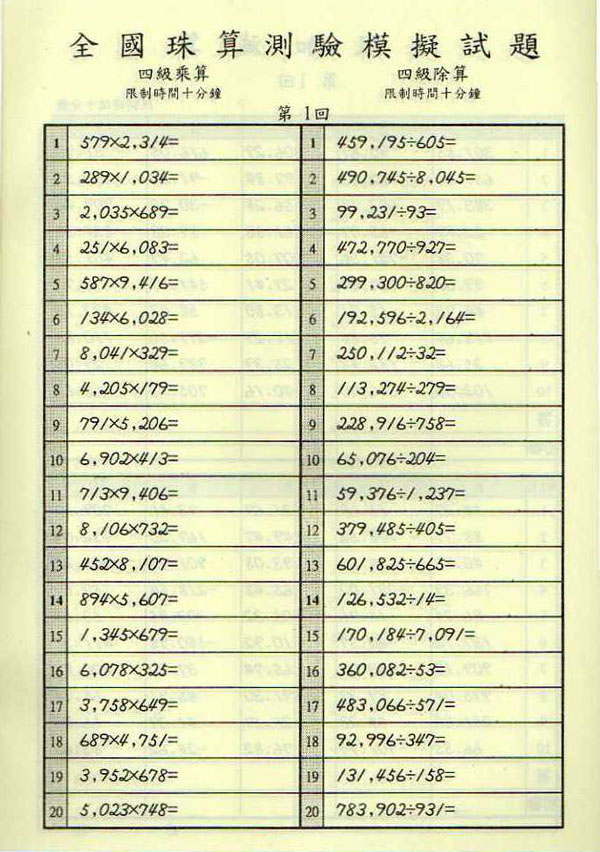 全國珠算測驗模擬試題
四級乘算 四級除算
限制時間十分鐘 限制時間十分鐘
第1回
1 579×2,314= 1 459,195÷605=
2 289×1,034= 2 490,745÷8,045=
3 2,035×689= 3 99,231÷93=
4 251×6,083= 4 472,770÷927=
5 587×9,416= 5 299,300÷820=
6 134×6,028= 6 192,596÷2,164=
7 8,041×329= 7 250,112÷32=
8 4,205×179= 8 113,274÷279=
9 791×5,206= 9 228,916÷758=
10 6,902×413= 10 65,076÷204=
11 713×9,406= 11 59,376÷1,237=
12 8,106×732= 12 379,485÷405=
13 452×8,107= 13 601,825÷665=
14 894×5,607= 14 126,532÷14=
15 1,345×679= 15 170,184÷7,091=
16 6,078×325= 16 360,082÷53=
17 3,758×649= 17 483,066÷571=
18 689×4,751= 18 92,996÷347=
19 3,952×678= 19 131,456÷158=
20 5,023×748= 20 783,902÷931=